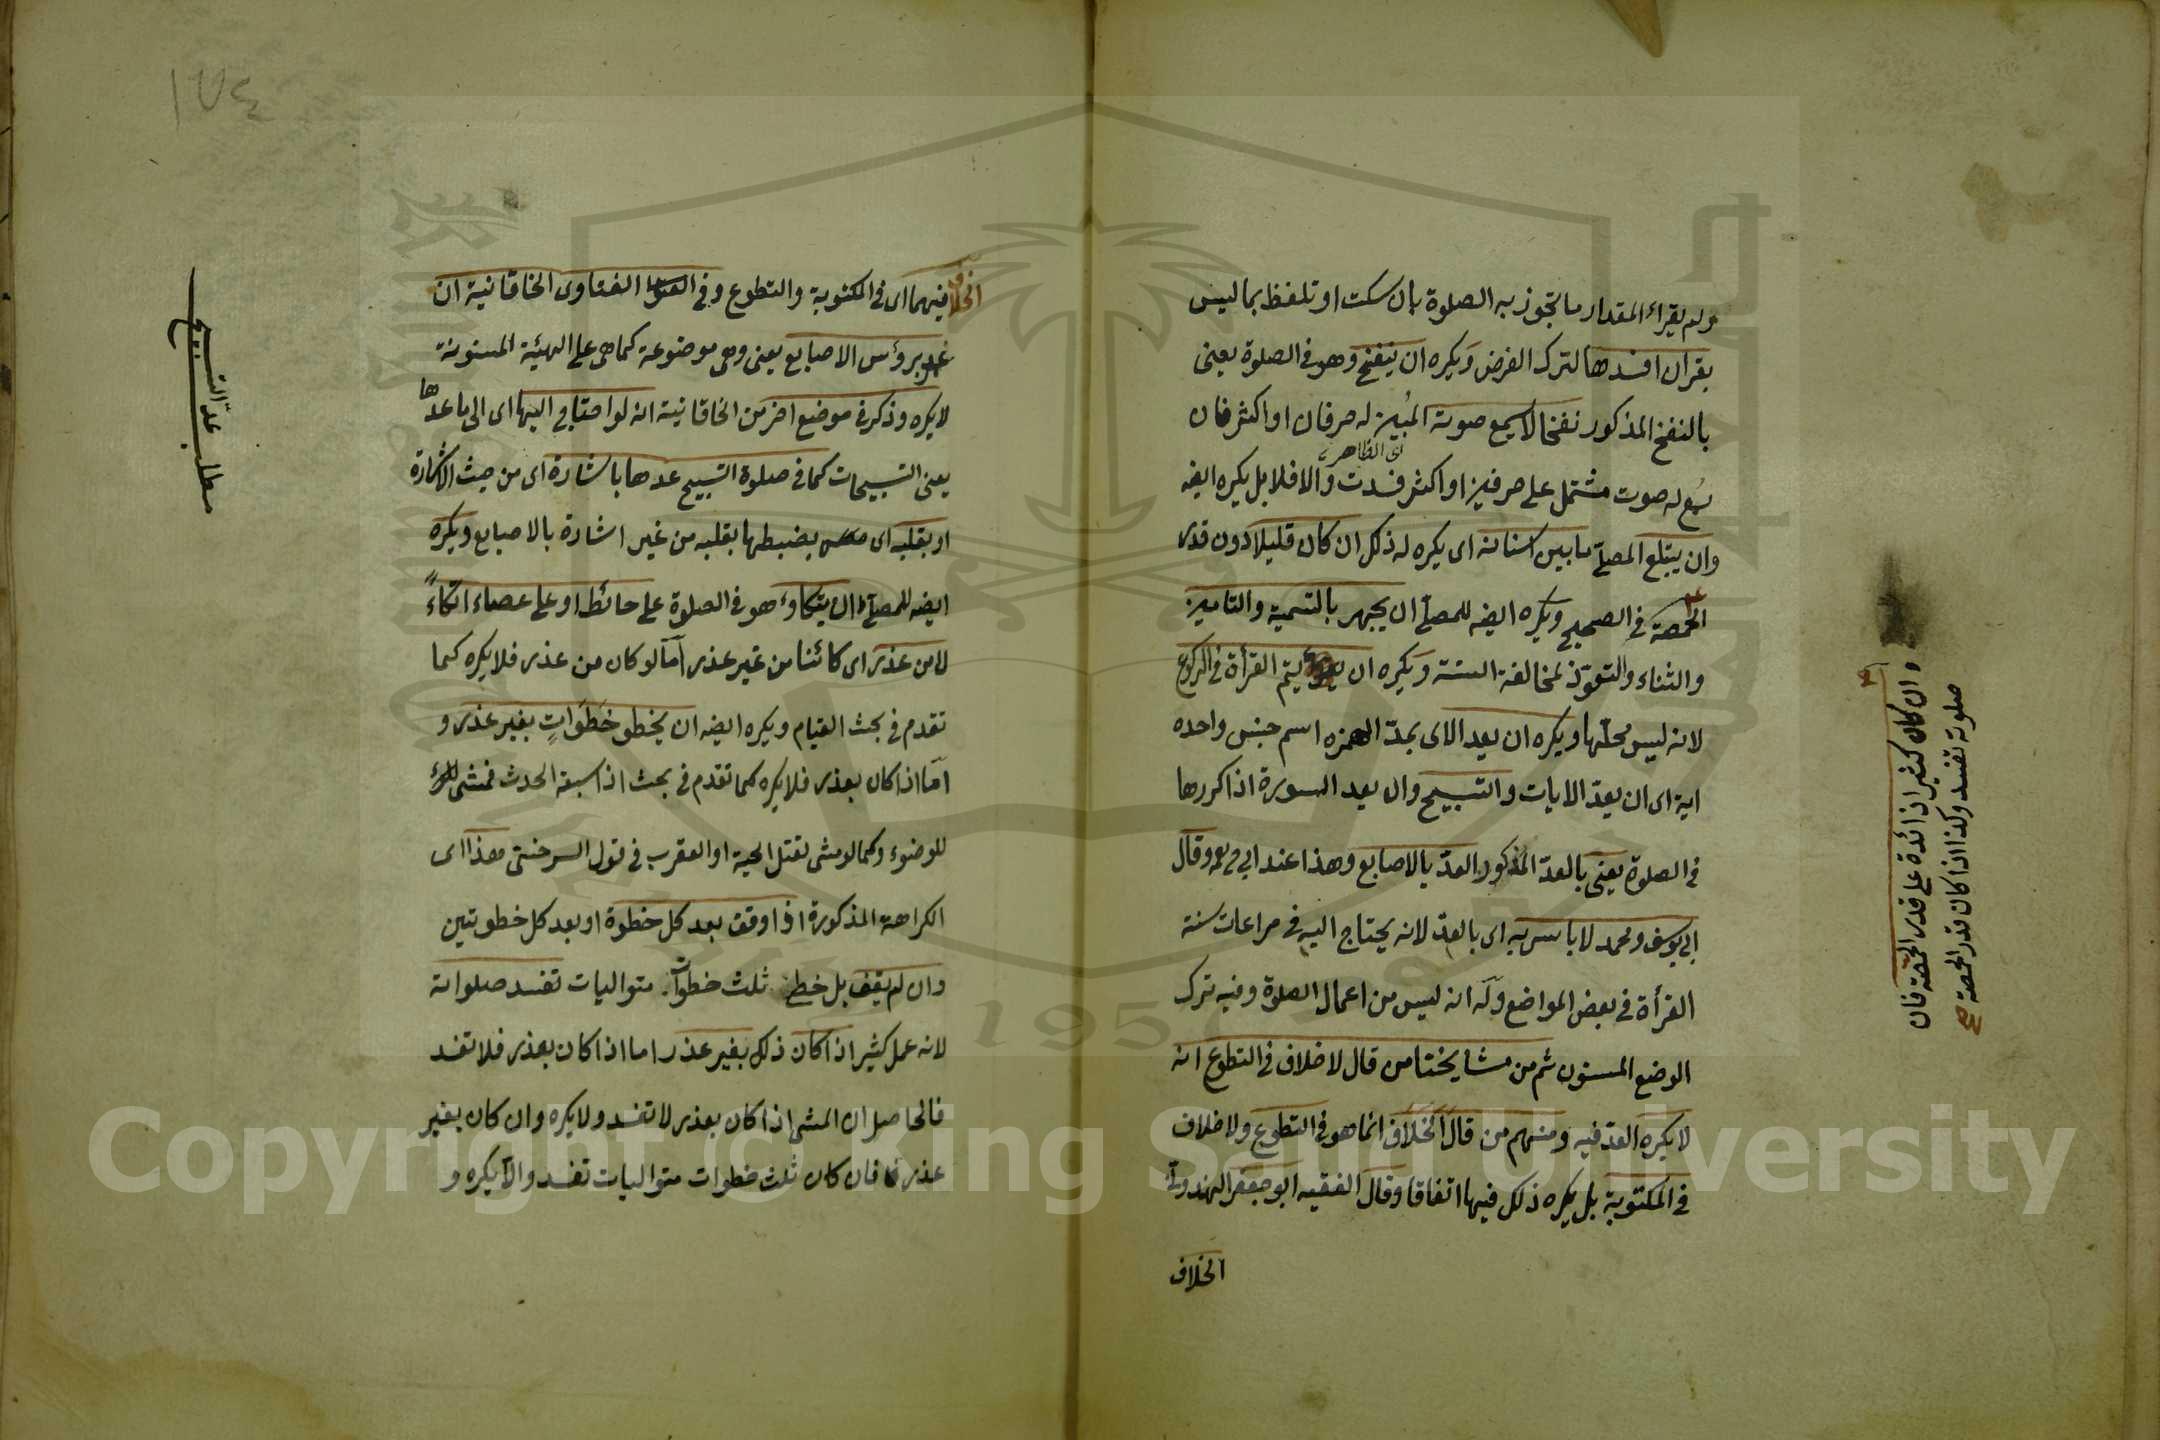 ولم يقراء المقدار ما تجوز به الصلوة بان سكت او تلفظ بما ليس
بقران افسدها لترك الفرض ويكره ان ينفخ وهو فى الصلوة يعنى
بالنفخ المذكور نفخا لا يسمع صوته المبين له حرفان او اكثر فان
اى الظاهر
يسمع له صوت مشتمل على حرفين او اكثر فسدت والا فلا بل يكره ايضه
وان يبتلع المصلى ما بين اسنانه اى يكره له ذلك ان كان قليلا دون قدر
الحمصة فى الصحيح ويكره ايضه للمصلى ان يجهر بالتسمية والتامين
والثناء والتعوذ لمخالفة السنة ويكره ان يتم القرأة فى الركوع
لانه ليس محلها ويكره ان يعد الاى بمد الهمزه اسم جنس واحده
اية اى ان يعد الايات والتسبيح وان يعد السورة اذا كررها
فى الصلوة يعنى بالعد المذكور العد بالاصابع وهذا عند ابى ح وقال
ابى يوسف ومحمد لا باس به اى بالعد لانه يحتاج اليه فى مراعات سنة
القرأة فى بعض المواضع وله انه ليس من اعمال الصلوة وفيه ترك
الوضع المسنون ثم من مشايخنا من قال لا خلاف فى التطوع انه
لا يكره العد فيه ومنهم من قال الخلاف انما هو فى التطوع ولا خلاف
فى المكتوبة بل يكره ذلك فيها اتفاقا وقال الفقيه ابو جعفر الهندوانى
الخلاف
وان كان كثيرا زائدة على قدر الحمصة فان
صلوته تفسد وكذا اذا كان قدر الحمصة صح
١٧٤
الخلاف فيهما اى فى المكتوبة والتطوع وفى الفتاوى الخاقانية ان
غمز برؤس الاصابع يعنى وهى موضوعة كما هى على الهيئة المسنونة
لا يكره وذكر فى موضع اخر من الخاقانية انه لو احتاج اليها اى الى ما عدها
يعنى التسبيحات كما فى صلوة التسبيح عدها باشارة اى من حيث الاشارة
او بقلبه اى يضبطها بقلبه من غير اشارة بالاصابع ويكره
ايضه للمصلى ان يتكاء وهو فى الصلوة على حائط او على عصاء اتكاءً
لا من عذر اى كائنا من غير عذر اما لو كان من عذر فلا يكره كما
تقدم فى بحث القيام ويكره ايضه ان يخطو خطوات بغير عذر و
اما اذا كان بعذر فلا يكره كما تقدم فى بحث اذا سبقه الحدث فمشى
للوضوء وكما لو مشى لقتل الحية او العقرب فى قول السرخسى هذا اى
الكراهة المذكورة اذا وقف بعد كل خطوة او بعد كل خطوتين
وان لم يقف بل خط ثلث خطوات متواليات تفسد صلوته
لانه عمل كثير اذا كان ذلك بغير عذر اما اذا كان بعذر فلا تفسد
فالحاصل ان المشى اذا كان بعذر لا تفسد ولا يكره وان كان بغير
عذر فان كان ثلث خطوات متواليات تفسد والا يكره و
مطلب عد التسبيح
Copyright © King Saud University
1957